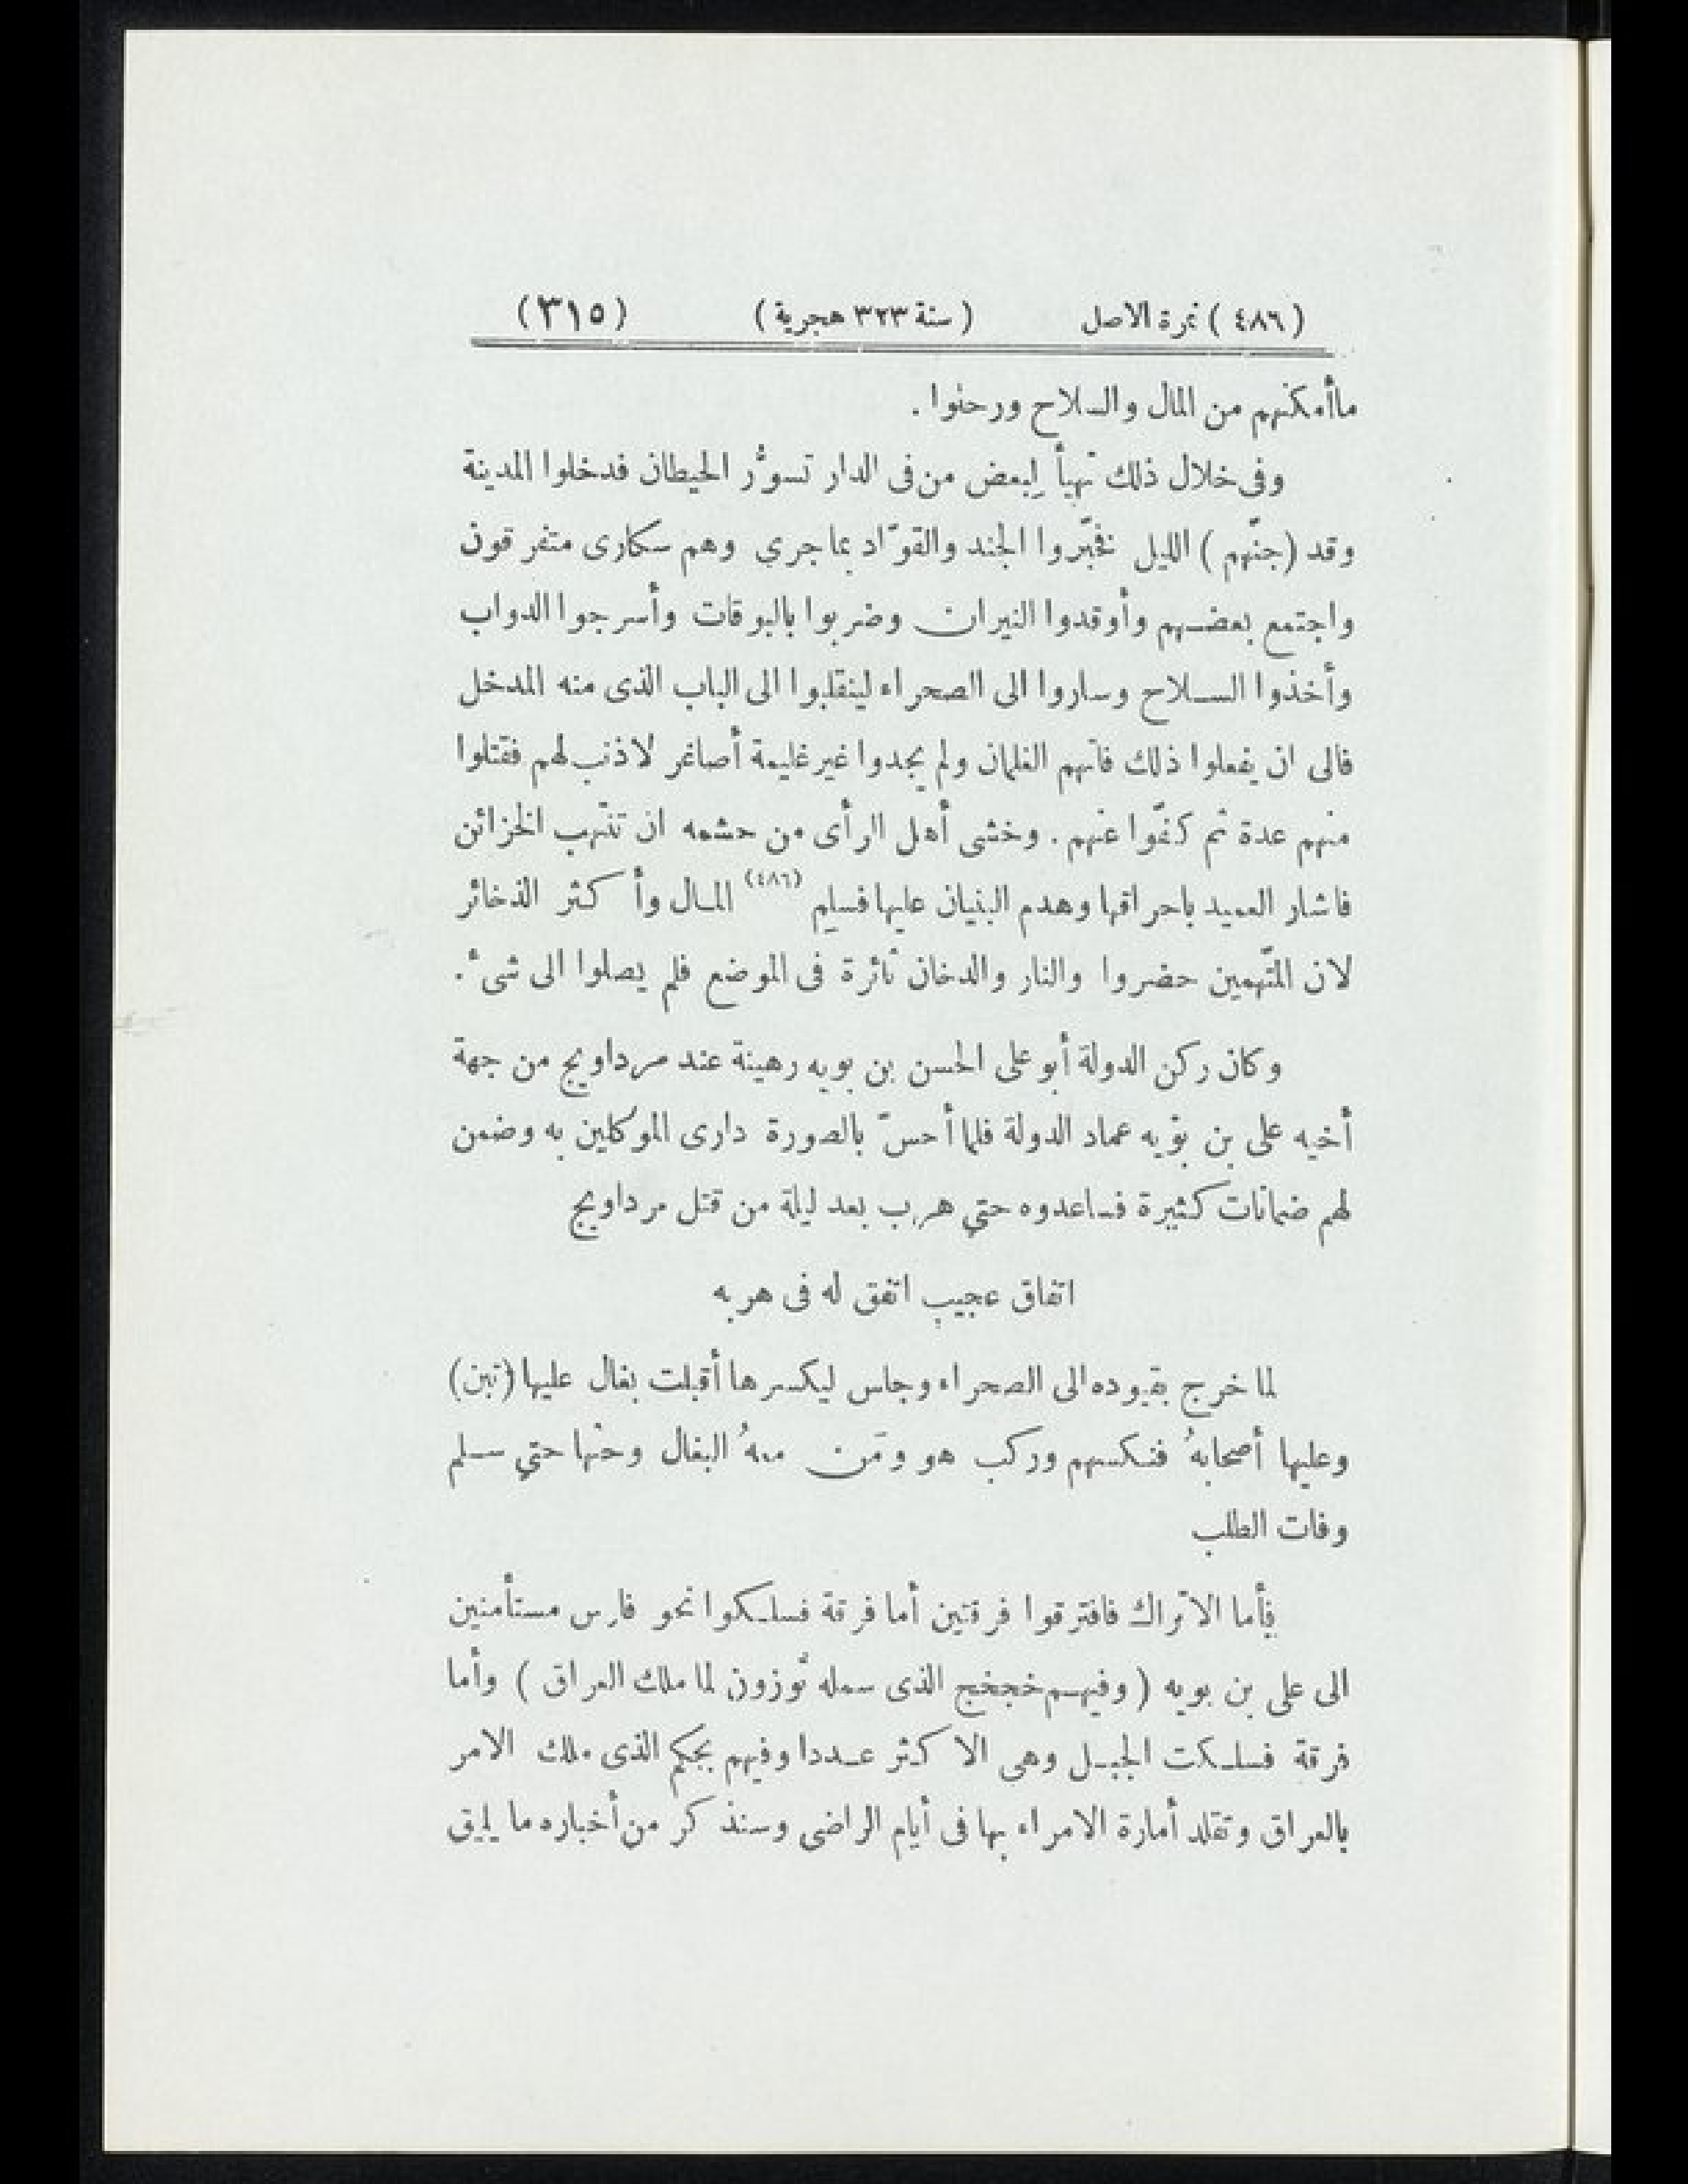 (٤٨٦) نمرة الاصل (سنة ٣٢٣ هجرية) (٣١٥)
ماأمكنهم من المال والسلاح ورحلوا.
وفى خلال ذلك تهيأ لبعض من فى الدار تسوُّر الحيطان فدخلوا المدينة
وقد (جنّهم) الليل فخبّروا الجند والقوّاد بماجري وهم سكارى متفرقون
واجتمع بعضهم وأوقدوا النيران وضربوا بالبوقات وأسرجوا الدواب
وأخذوا السلاح وساروا الى الصحراء لينقلبوا الى الباب الذى منه المدخل
فالى ان يفعلوا ذلك فاتهم الغلمان ولم يجدوا غير غليمة أصاغر لاذنب لهم فقتلوا
منهم عدة ثم كفّوا عنهم. وخشى أهل الرأى من حشمه ان تنتهب الخزائن
فاشار العميد باحراقها وهدم البنيان عليها فسلم (٤٨٦) المال وأكثر الذخائر
لان المتّهمين حضروا والنار والدخان ثائرة فى الموضع فلم يصلوا الى شىء.
وكان ركن الدولة أبو على الحسن بن بويه رهينة عند مرداويج من جهة
أخيه على بن بوّيه عماد الدولة فلما أحسّ بالصورة دارى الموكلين به وضمن
لهم ضمانات كثيرة فساعدوه حتي هرب بعد ليلة من قتل مرداويج
اتفاق عجيب اتفق له فى هربه
لما خرج بقيوده الى الصحراء وجلس ليكسرها أقبلت بغال عليها (تبن)
وعليها أصحابهُ فنكسهم وركب هو ومَن معهُ البغال وحثها حتي سلم
وفات الطلب
فأما الاتراك فافترقوا فرقتين أما فرقة فسلكوا نحو فارس مستأمنين
الى على بن بويه (وفيهم خجخج الذى سمله توزون لما ملك العراق) وأما
فرقة فسلكت الجبل وهى الاكثر عددا وفيهم بجكم الذى ملك الامر
بالعراق وتقلد أمارة الامراء بها فى أيام الراضى وسنذكر من أخباره ما يليق